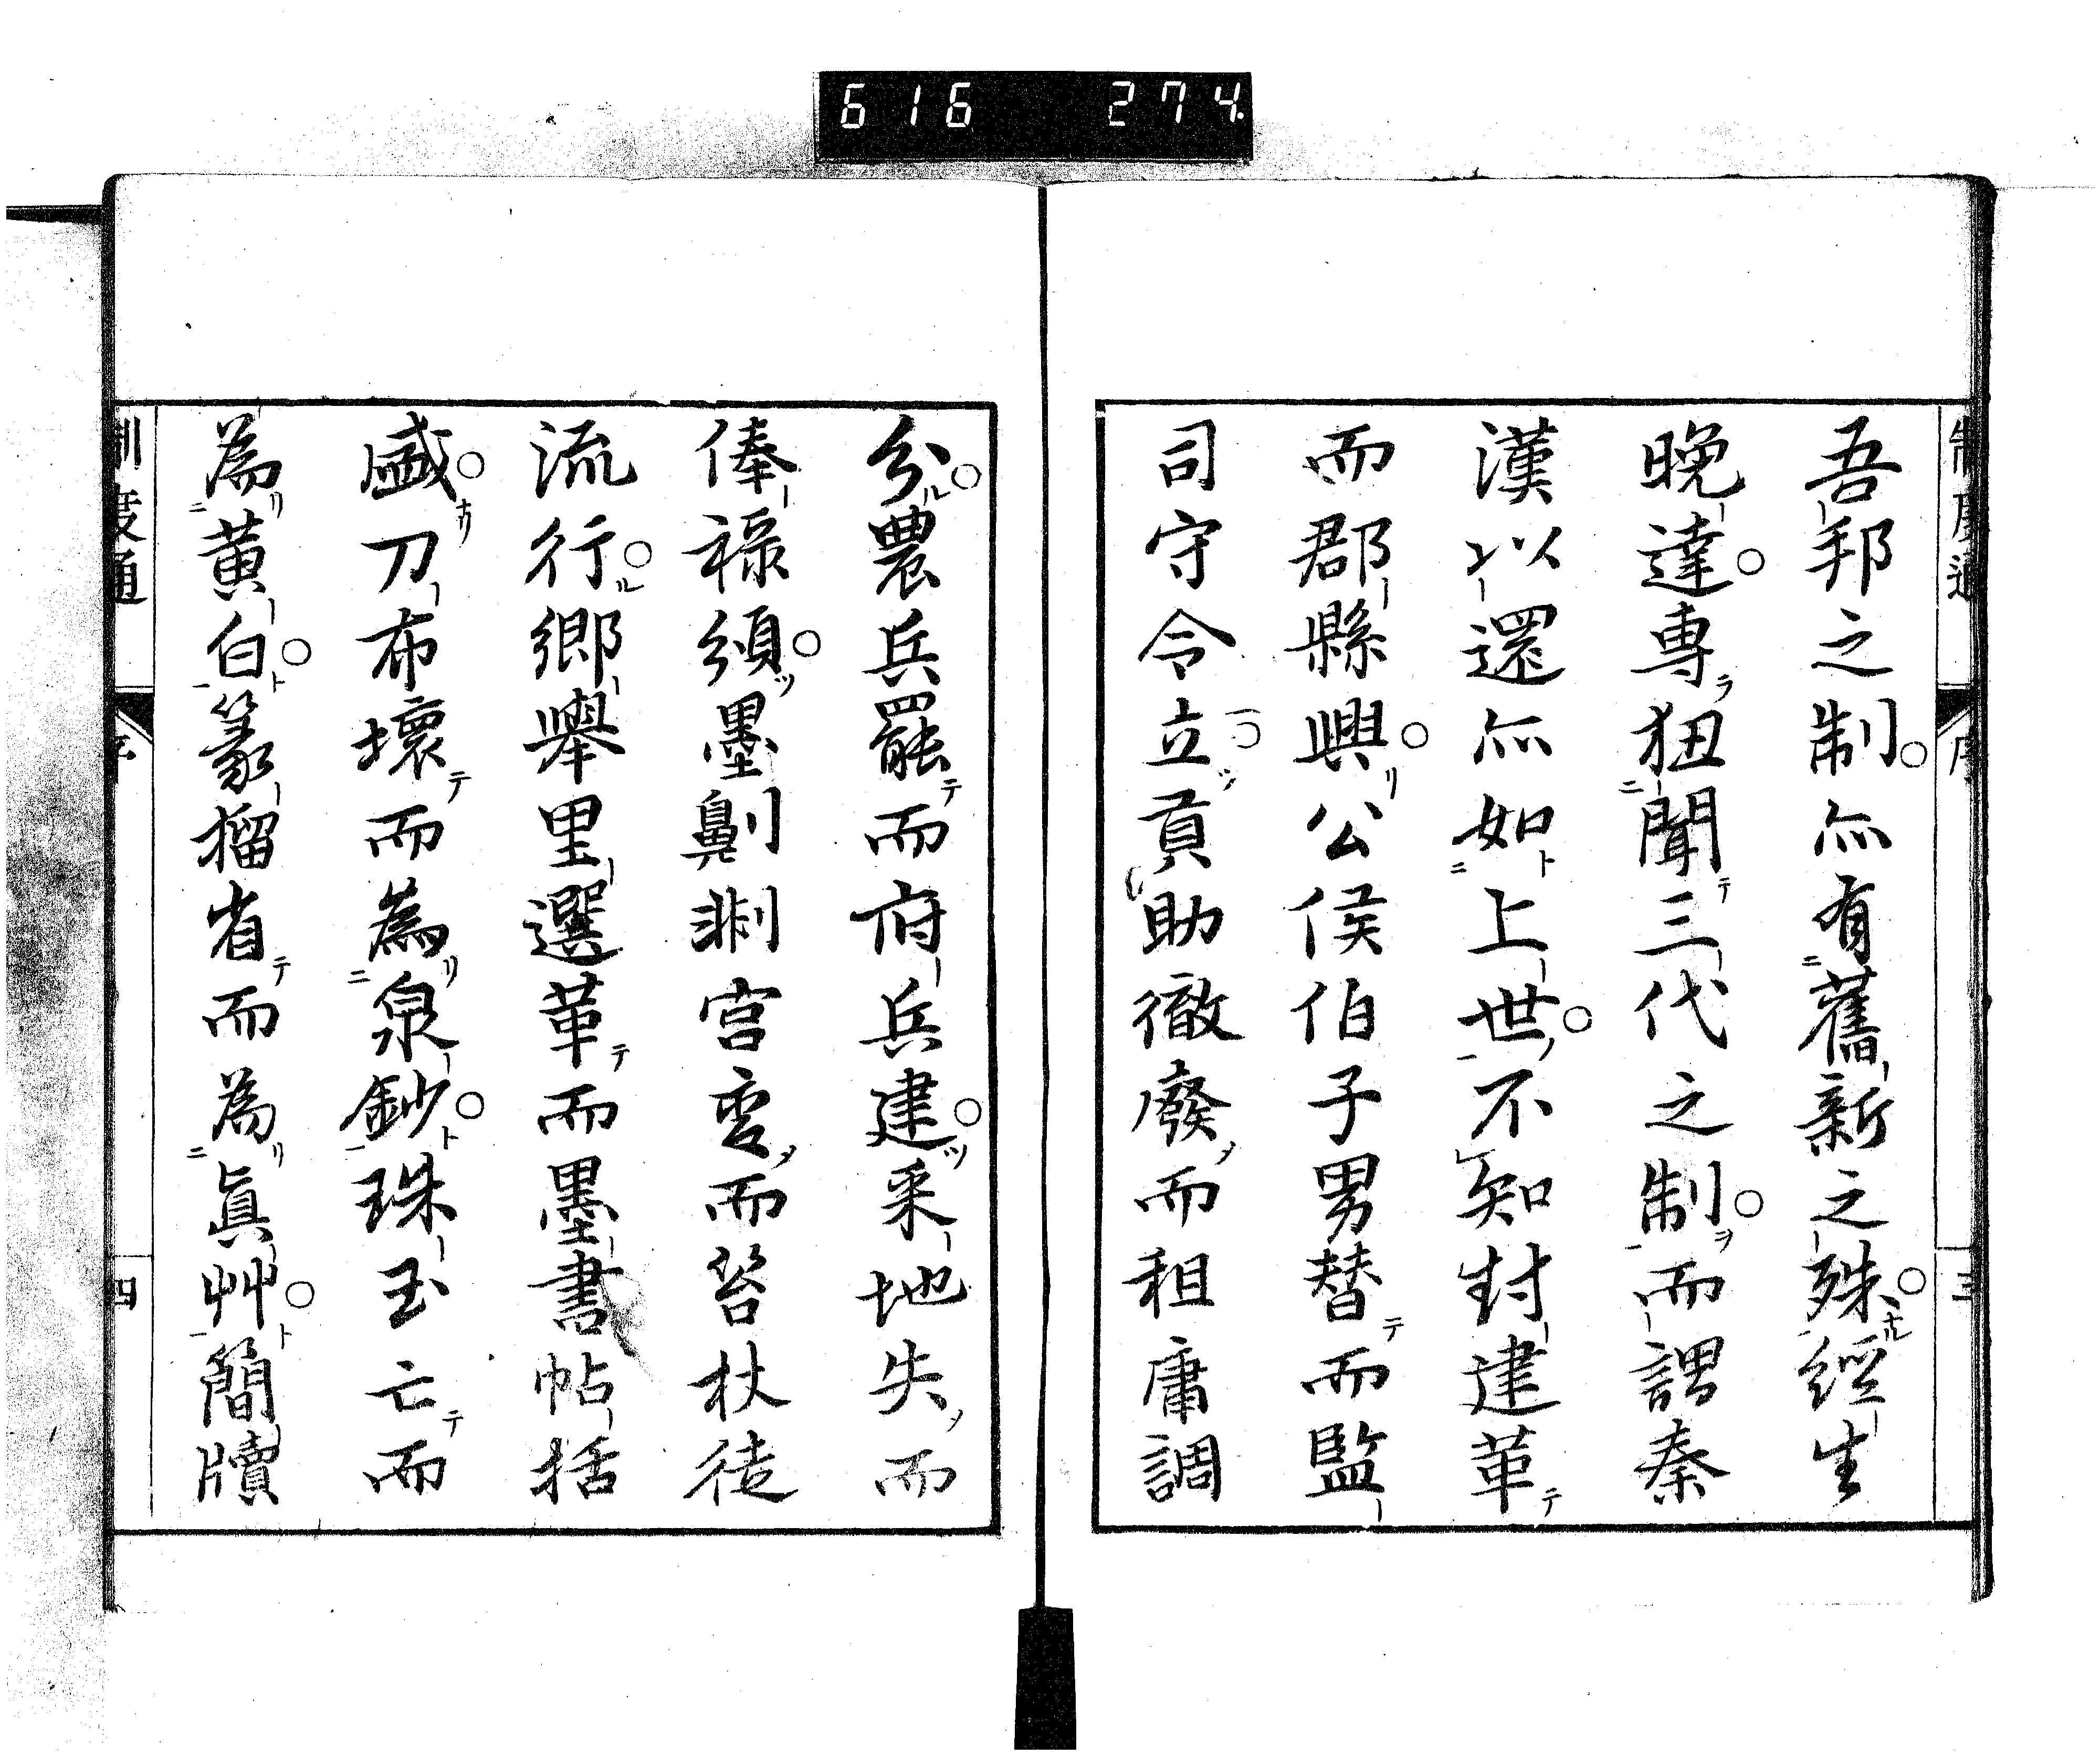 616 274.
制度通 序 三
吾邦之制亦有舊新之殊經生
晩達專狃聞三代之制而謂秦
漢以還亦如上世不知封建革
而郡縣興公侯伯子男替而監
司守令立貢助徹廢而租庸調
分農兵罷而府兵建采地失而
俸禄頒墨劓剕宮変而笞杖徒
流行郷擧里選革而墨書帖括
盛刀布壞而為泉鈔珠玉亡而
為黄白篆籀省而為眞艸簡牘
制度通 序 四